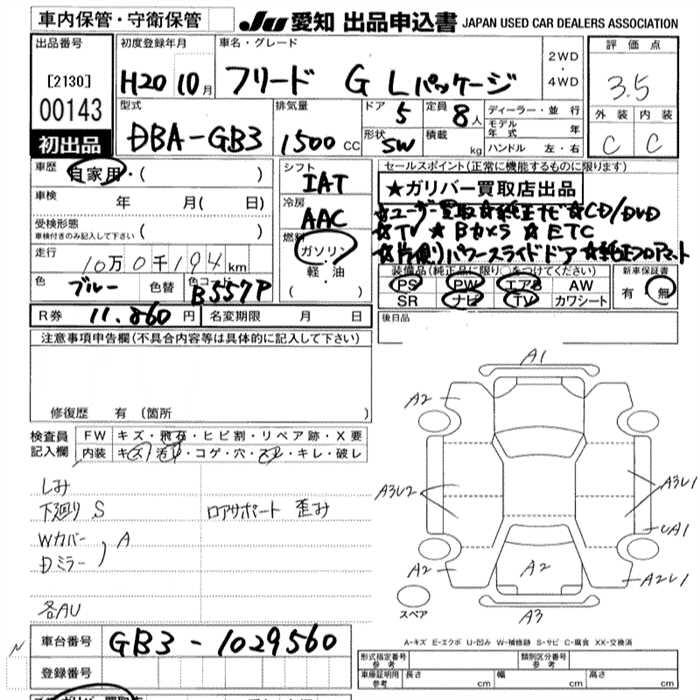 車内保管・守衛保管 JU 愛知 出品申込書 JAPAN USED CAR DEALERS ASSOCIATION
出品番号 初度登録年月 車名・グレード 2WD・4WD 評価点
[2130] H20 10月 フリード G Lパッケージ 3.5
00143 型式 排気量 ドア 5 定員 8人 ディーラー・並行 外装 内装
初出品 DBA-GB3 1500cc 形状 SW 積載 kg モデル年式 年 C C
ハンドル 左・右
車歴 自家用・( ) シフト IAT セールスポイント(正常に機能するものに限ります)
車検 年 月( 日) 冷房 AAC ★ガリバー買取店出品
受検形態 車検付きのみ記入して下さい ( ) 燃料 ガソリン・軽油 ( ) ★ユーザー買取★純正ナビ★CD/DVD
★TV ★Bカメラ ★ETC
走行 10万0千194km ★片側パワースライドドア ★純正フロアマット
色 ブルー 色替 色コード B557P 装備品(純正品に限り○をつけてください) 新車保証書
PS PW エアB AW 有・無
SR ナビ TV カワシート
R券 11,860円 名変期限 月 日 後日品
注意事項申告欄(不具合内容等は具体的に記入して下さい)
修復歴 有(箇所
検査員記入欄 FW キズ・飛石・ヒビ割・リペア跡・X要
内装 キズ・汚れ・コゲ・穴・スレ・キレ・破レ
しみ
下廻り S ロアサポート 歪み
Wカバー
Dミラー ) A
各AU
A1
A2
A3U2 A3U1
UA1
A2 A2 A2U1
スペア A3
A-キズ E-エクボ U-凹み W-補修跡 S-サビ C-腐食 XX-交換済
車台番号 GB3-1029560
登録番号
形式指定番号 参考 類別区分番号 参考
車庫証明用 参考 長さ cm 幅 cm 高さ cm